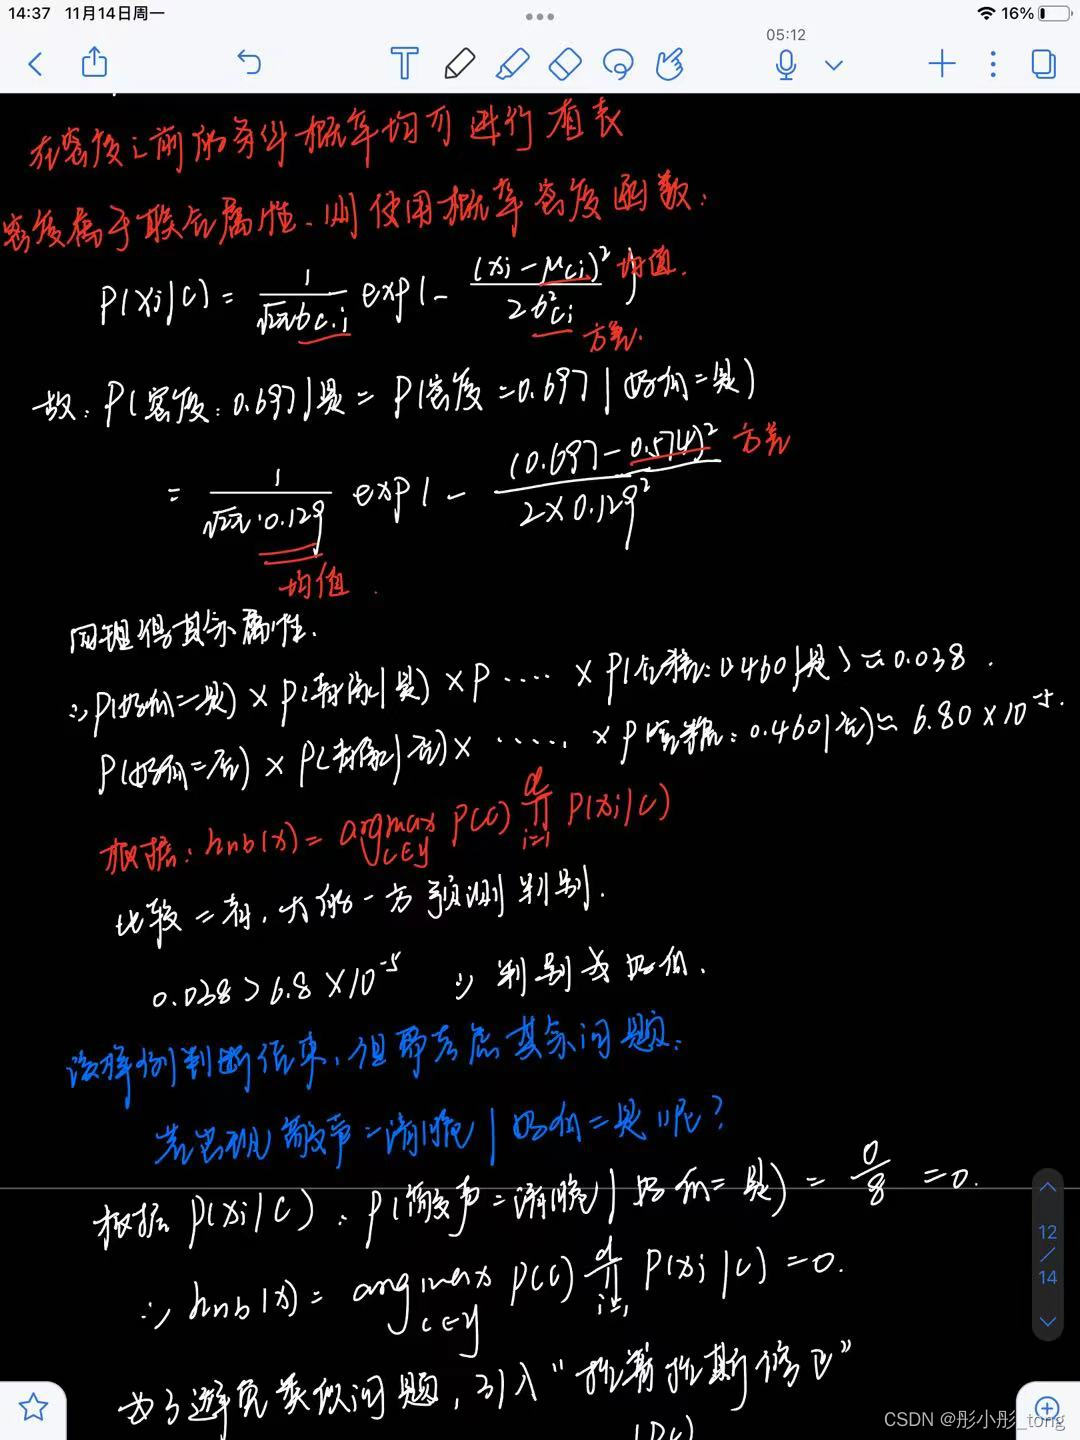 14:37 11月14日周一 16%
05:12
在密度之前的条件概率均可进行查表
密度属于联合属性、则使用概率密度函数:
P(xi|c) = 1/√2π6c.i exp(- (xi-μci)²/26²ci) 均值.
方差.
故: P(密度:0.697|是 = P(密度=0.697|好瓜=是)
= 1/√2π·0.129 exp(- (0.697-0.574)²/2×0.129² 方差
均值.
同理得其余属性.
∴P(好瓜=是)×P(敲声|是)×P....×P(含糖:0.460|是)≈0.038.
P(好瓜=否)×P(敲声|否)×.....×P(含糖:0.460|否)≈6.80×10⁻⁵.
根据: hnb(x)= argmax c∈y P(c) d∏i=1 P(xi|c)
比较二者,大的一方预测判别.
0.038>6.8×10⁻⁵ ∴判别为好瓜.
该样例判断结束,但要考虑其余问题:
若出现敲声=清脆|好瓜=是呢?
根据P(xi|c):P(敲声=清脆|好瓜=是)=0/8=0.
∴hnb(x)=argmax c∈y P(c) d∏i=1 P(xi|c)=0.
为了避免类似问题,引入"拉普拉斯修正"
12
/
14
CSDN @彤小彤_tong